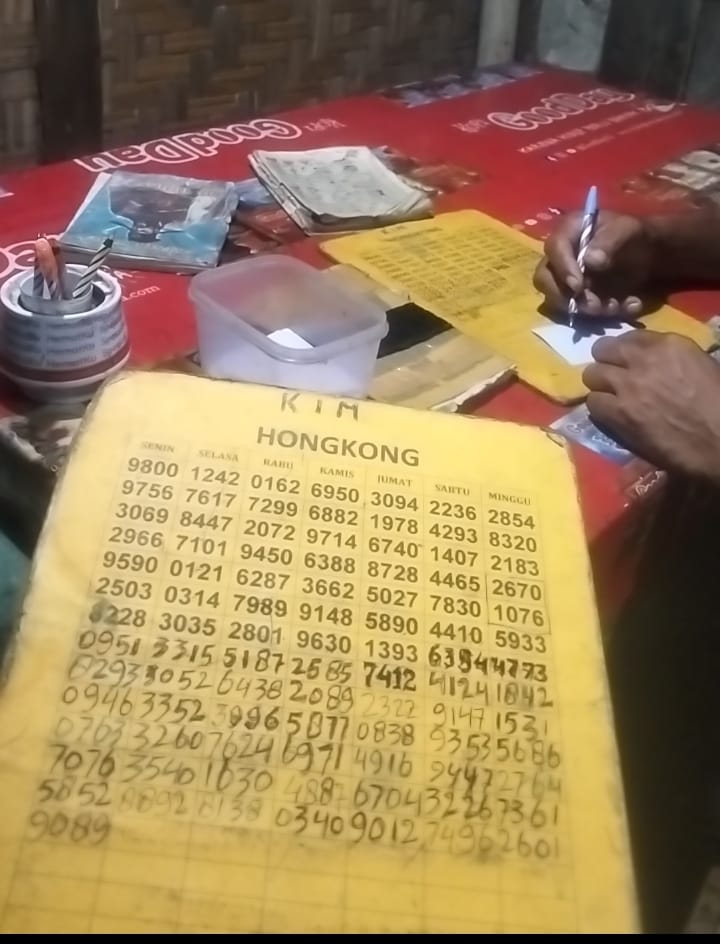 GoodDay
GoodDay
KIM
HONGKONG
SENIN SELASA RABU KAMIS JUMAT SABTU MINGGU
9800 1242 0162 6950 3094 2236 2854
9756 7617 7299 6882 1978 4293 8320
3069 8447 2072 9714 6740 1407 2183
2966 7101 9450 6388 8728 4465 2670
9590 0121 6287 3662 5027 7830 1076
2503 0314 7989 9148 5890 4410 5933
8228 3035 2801 9630 1393 6384
0951 3315 5187 2585 7412 4124 1842
8293 3052 6438 2089 2322 9147 1531
0946 3352 3996 0838 9353 5686
0703 3260 7624 6971 4916 2764
7076 3540 1630 4887 6704 3226 7361
5852 8892 8138 0340 9012 7496 2601
9089